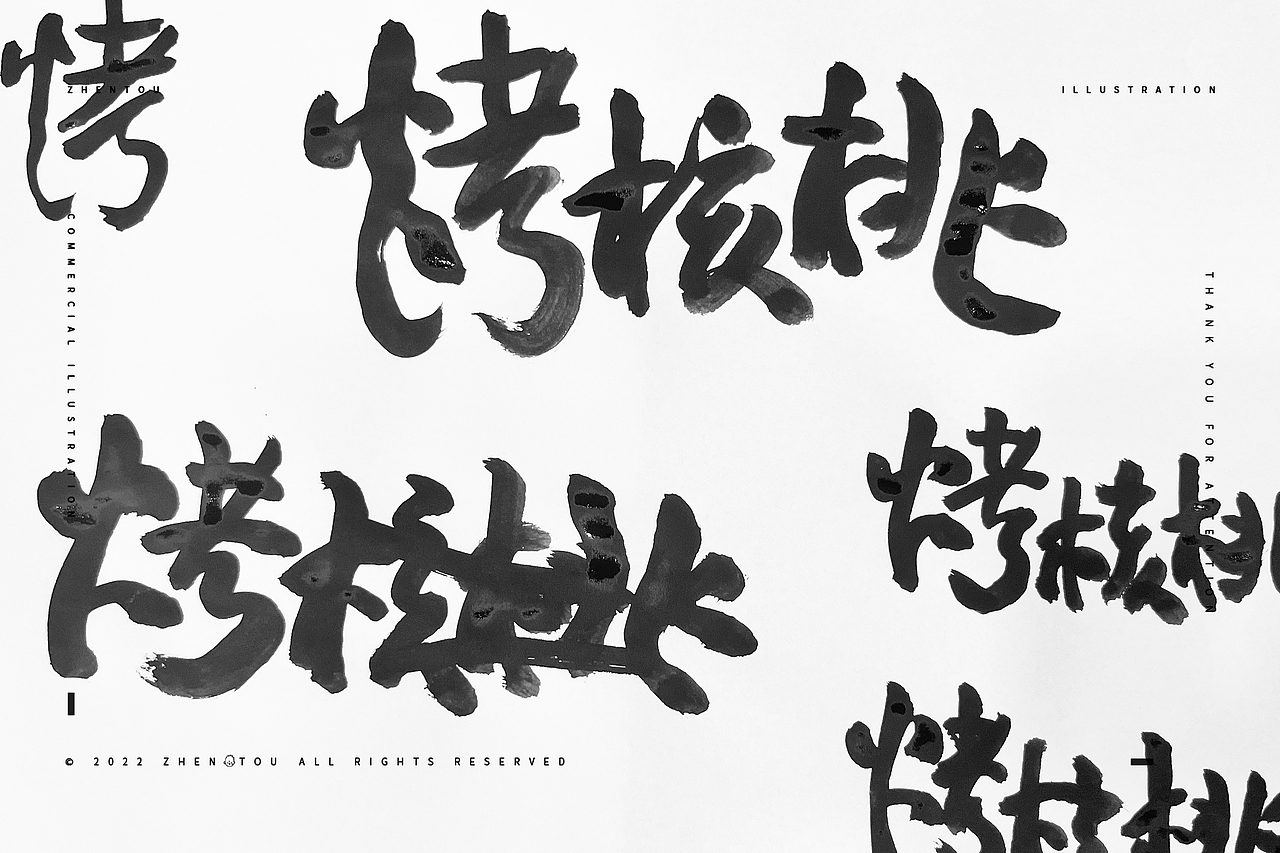 烤
烤核桃
ZHENTOU
ILLUSTRATION
COMMERCIAL ILLUSTRATION
THANK YOU FOR ATTENTION
烤核桃
烤核桃
烤核桃
© 2022 ZHENTOU ALL RIGHTS RESERVED